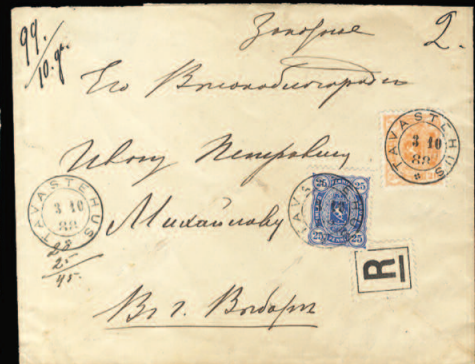 99.
10. gr.
Заказное
2.
Его Высокоблагородiю
Ивану Петровичу
Михайлову
Въ г. Выборгъ
TAVASTEHUS
3 10
88
TAVASTEHUS
3 10
88
25 25
25 25
R
25
45.